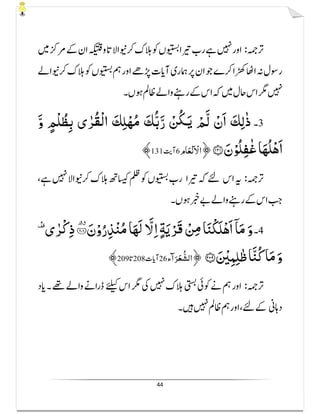 ترجمہ: اور نہیں ہے رب تیرا بستیوں کو ہلاک کرنیوالا تا وقتیکہ ان کے مرکز میں
رسول نہ اٹھا کھڑا کرے جو ان پر ہماری آیات پڑھے اور ہم بستیوں کو ہلاک کرنیوالے
نہیں مگر اس حال میں کہ اس کے رہنے والے ظالم ہوں۔
3۔ ذٰلِكَ اَنْ لَّمْ يَكُنْ رَّبُّكَ مُهْلِكَ الْقُرٰى بِظُلْمٍ وَّ
اَهْلُهَا غٰفِلُوْنَ ﴿اَلْاَنْعَام 6 آیت 131﴾
ترجمہ: یہ اس لئے کہ تیرا رب بستیوں کو ظلم کیساتھ ہلاک کرنیوالا نہیں ہے،
جب اس کے رہنے والے بے خبر ہوں۔
4۔ وَ مَاۤ اَهْلَكْنَا مِنْ قَرْيَةٍ اِلَّا لَهَا مُنْذِرُوْنَ ذِكْرٰى
وَ مَا كُنَّا ظٰلِمِيْنَ ﴿اَلشُّعَرَآء 26 آیات 208 تا 209﴾
ترجمہ: اور ہم نے کوئی بستی ہلاک نہیں کی مگر اس کیلئے ڈرانے والے تھے۔ یاد
دہانی کے لئے، اور ہم ظالم نہیں ہیں۔
44